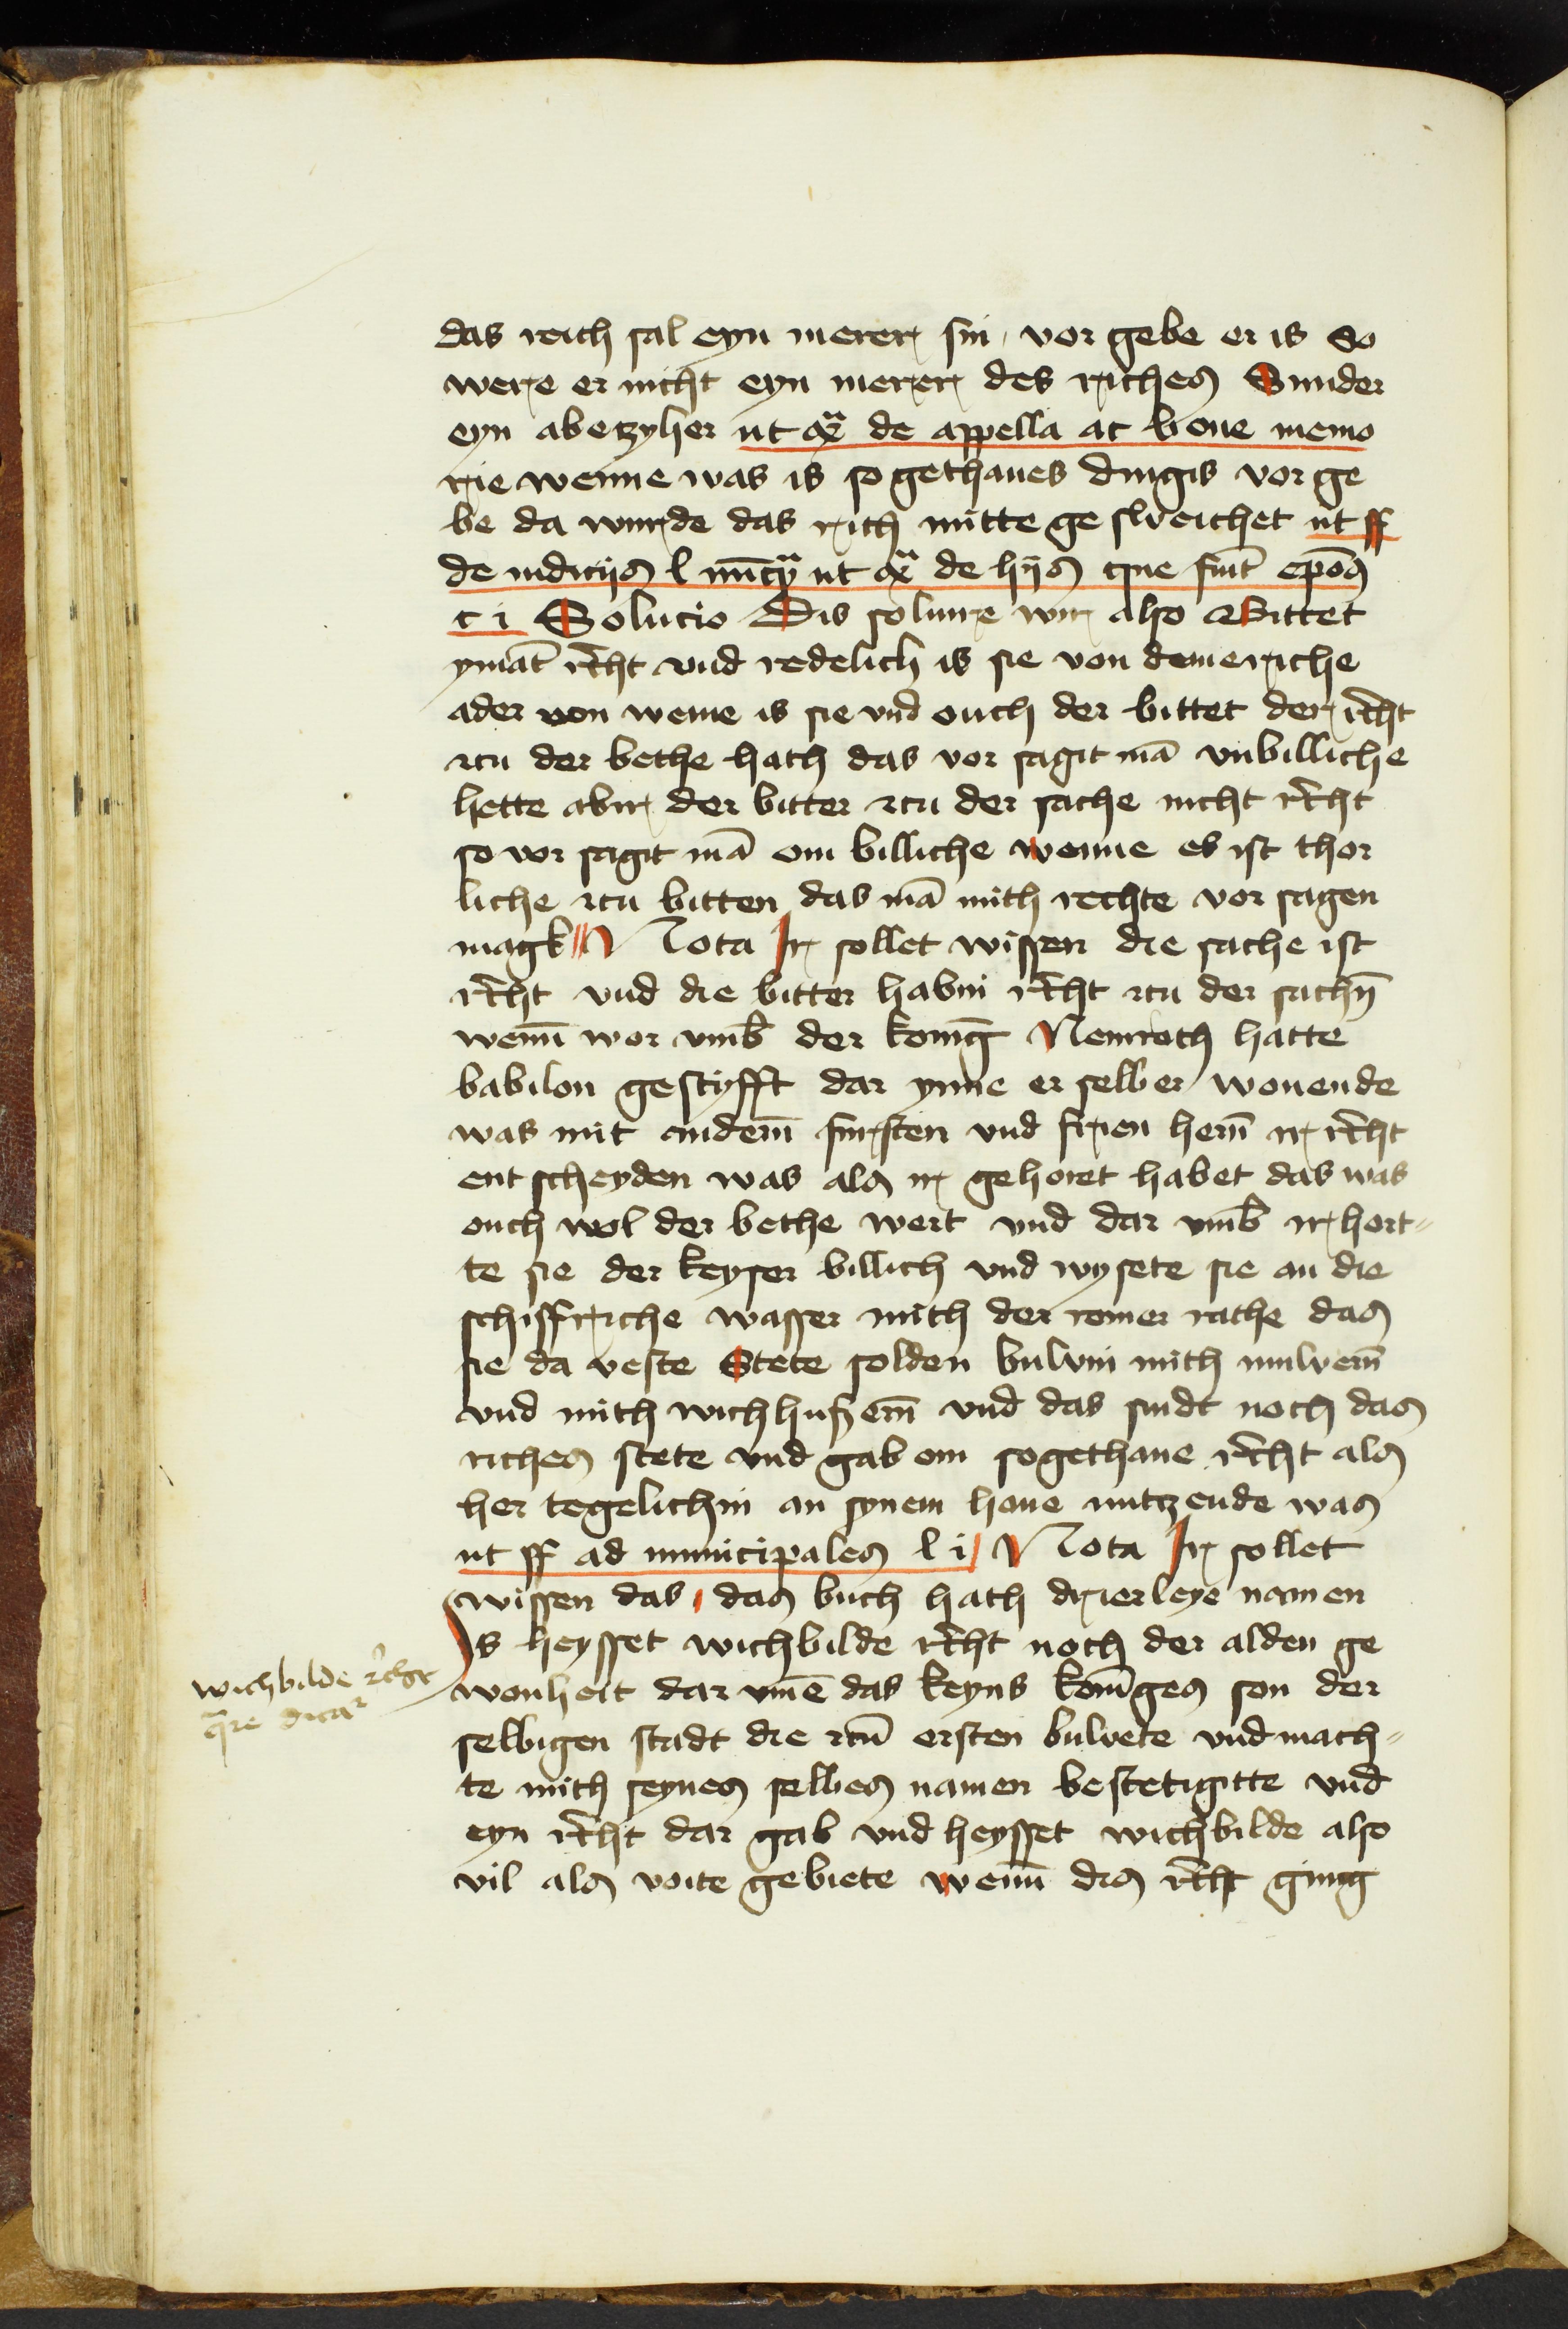 das reich sal eyn merer sin vor gebe er is So
were er nicht eyn merer des riches Sunder
eyn abetzyher ut de appella ac bone memo
rie wenne was is so gethanes dingis vor ge
be da wurde das rich mitte gesweichet ut ff
de iudicijs l ut de hijs que sūt
c i Solucio Dis solvire wir also Bittet
ymāt rc̄ht vnd redelich is sie von deme riche
ader von weme is sie vnd ouch der bittet der rc̄ht
zcu der bethe hath das vor sagit mā vnbilliche
hette abir der bitter zcu der sache nicht rc̄ht
so vor sagit mā om billiche wenne es ist thor
liche zcu bitten das mā mith rechte vor sagen
magk Nota Ir sollet wissen die sache ist
rc̄ht vnd die bitter habin rc̄ht zcu der sachn̄
wenn̄ wor vmb̄ der koniḡ Nemroth hatte
babilon gestifft dar ynne er selber wonende
was mit andern̄ fursten vnd frien hern̄ ir rc̄ht
ent scheyden was als ir gehoret habet das was
ouch wol der bethe wert vnd dar vmb̄ irhort-
te sie der keyser billich vnd wysete sie an die
schiffriche wasser mith der romer rathe das
sie da veste Stete solden buwin mith muwern̄
vnd mith wichhusern̄ vnd das sindt noch das
riches stete vnd gab om sogethane rc̄ht als
her tegelichin an synem houe nutzende was
ut ff ad municipales l i Nota Ir sollet
wissen das das buch hath drierleye namen
Is heysset wichbilde rc̄ht noch der alden ge
wonheit dar vmē das keyns kon̄iges son der
selbigen stadt die zcū ersten buwete vnd mach-
te mith seynes selbes namen bestetigitte vnd
eyn rc̄ht dar gab vnd heysset wichbilde also
vil als voite gebiete wenn̄ dis rc̄ht ging
wichbilde rc̄ht
q̄re dicar